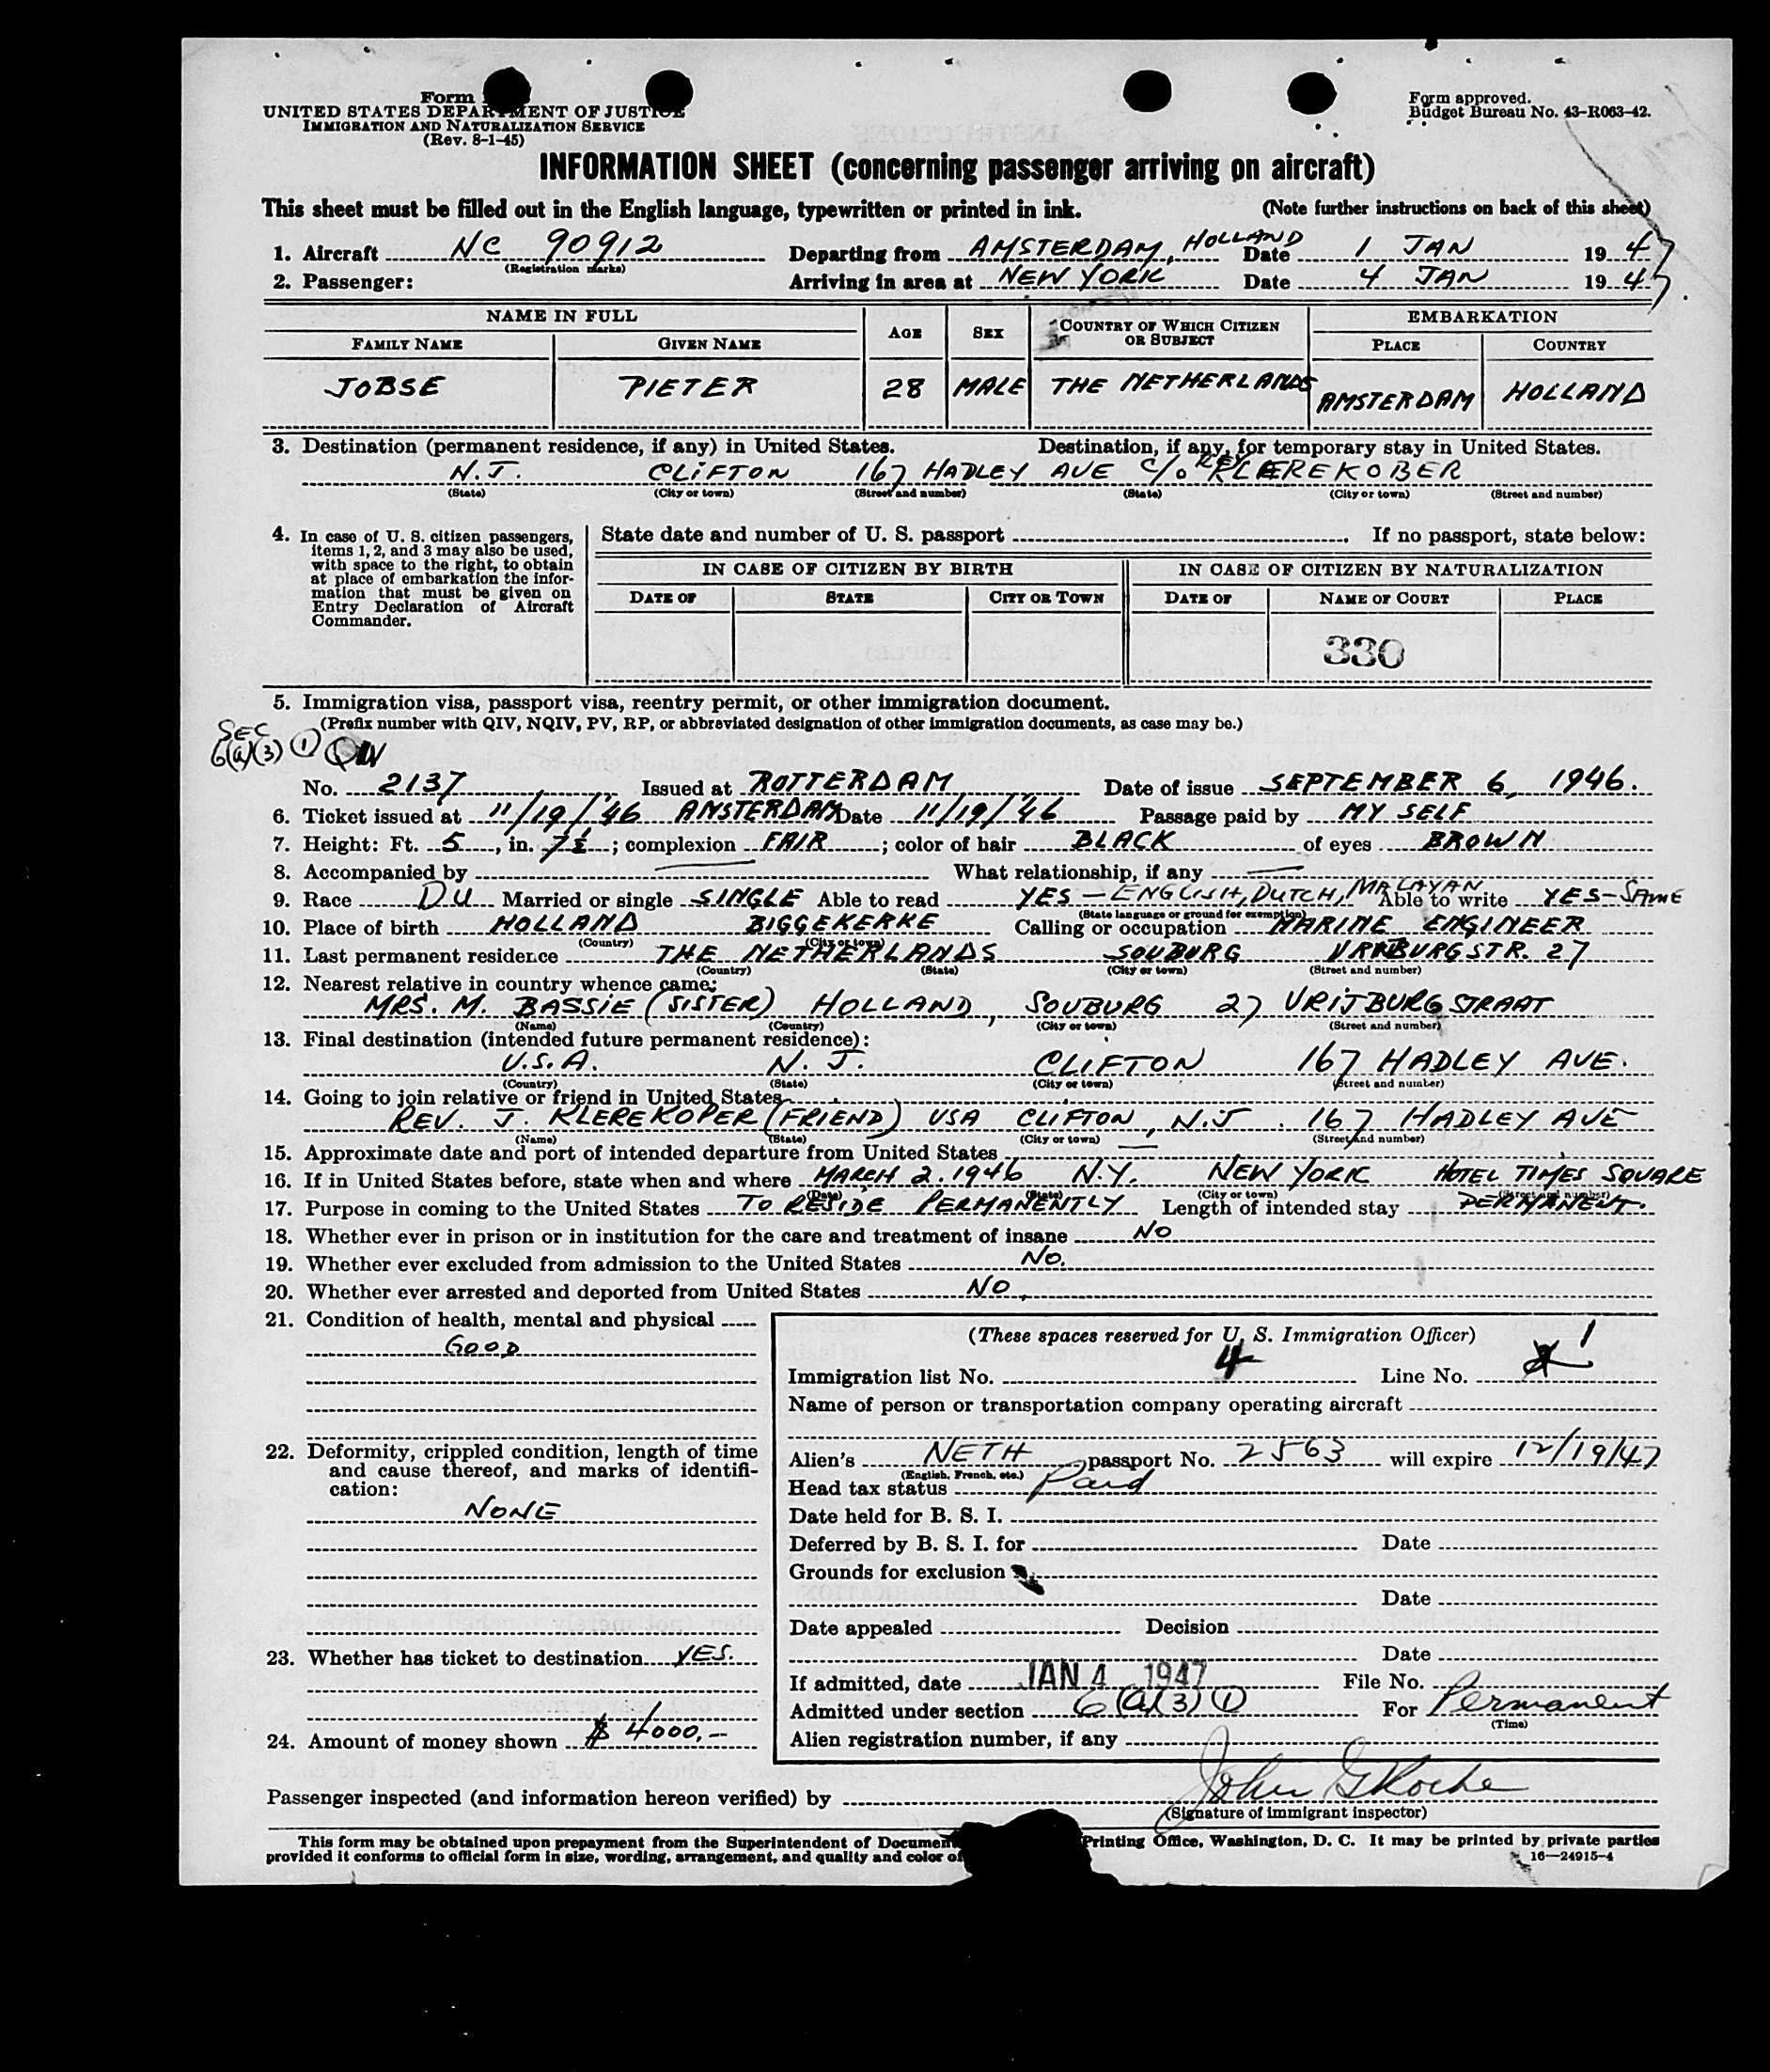 Form
UNITED STATES DEPARTMENT OF JUSTICE
IMMIGRATION AND NATURALIZATION SERVICE
(Rev. 8-1-45)
Form approved.
Budget Bureau No. 43-R063-42.
INFORMATION SHEET (concerning passenger arriving on aircraft)
This sheet must be filled out in the English language, typewritten or printed in ink. (Note further instructions on back of this sheet)
1. Aircraft NC 90912 Departing from AMSTERDAM, HOLLAND Date 1 JAN 1947
(Registration marks)
2. Passenger: Arriving in area at NEW YORK Date 4 JAN 1947.
NAME IN FULL AGE SEX COUNTRY OF WHICH CITIZEN OR SUBJECT EMBARKATION
FAMILY NAME GIVEN NAME PLACE COUNTRY
JOBSE PIETER 28 MALE THE NETHERLANDS AMSTERDAM HOLLAND
3. Destination (permanent residence, if any) in United States. Destination, if any, for temporary stay in United States.
N.J. CLIFTON 167 HADLEY AVE C/O REV KLEREKOBER
(State) (City or town) (Street and number) (State) (City or town) (Street and number)
4. In case of U. S. citizen passengers, items 1, 2, and 3 may also be used, with space to the right, to obtain at place of embarkation the information that must be given on Entry Declaration of Aircraft Commander.
State date and number of U. S. passport . If no passport, state below:
IN CASE OF CITIZEN BY BIRTH IN CASE OF CITIZEN BY NATURALIZATION
DATE OF STATE CITY OR TOWN DATE OF NAME OF COURT PLACE
330
5. Immigration visa, passport visa, reentry permit, or other immigration document.
(Prefix number with QIV, NQIV, PV, RP, or abbreviated designation of other immigration documents, as case may be.)
SEC
6(a)(3) (1) QIV
No. 2137 Issued at ROTTERDAM Date of issue SEPTEMBER 6, 1946.
6. Ticket issued at 11/19/'46 AMSTERDAM Date 11/19/'46 Passage paid by MY SELF
7. Height: Ft. 5, in. 7½; complexion FAIR; color of hair BLACK of eyes BROWN
8. Accompanied by — What relationship, if any —
9. Race DU Married or single SINGLE Able to read YES - ENGLISH, DUTCH, MALAYAN Able to write YES - SAME
(State language or ground for exemption)
10. Place of birth HOLLAND BIGGEKERKE Calling or occupation MARINE ENGINEER
(Country) (City or town)
11. Last permanent residence THE NETHERLANDS SOUBURG VRYBURGSTR. 27
(Country) (State) (City or town) (Street and number)
12. Nearest relative in country whence came:
MRS. M. BASSIE (SISTER) HOLLAND, SOUBURG 27 VRIJBURGSTRAAT
(Name) (Country) (City or town) (Street and number)
13. Final destination (intended future permanent residence):
U.S.A. N.J. CLIFTON 167 HADLEY AVE.
(Country) (State) (City or town) (Street and number)
14. Going to join relative or friend in United States
REV. J. KLEREKOPER (FRIEND) USA CLIFTON, N.J. 167 HADLEY AVE
(Name) (State) (City or town) (Street and number)
15. Approximate date and port of intended departure from United States —
16. If in United States before, state when and where MARCH 2. 1946 N.Y. NEW YORK HOTEL TIMES SQUARE
(Date) (State) (City or town) (Street and number)
17. Purpose in coming to the United States TO RESIDE PERMANENTLY Length of intended stay PERMANENT.
18. Whether ever in prison or in institution for the care and treatment of insane NO
19. Whether ever excluded from admission to the United States NO.
20. Whether ever arrested and deported from United States NO.
21. Condition of health, mental and physical
GOOD
22. Deformity, crippled condition, length of time and cause thereof, and marks of identification:
NONE
23. Whether has ticket to destination YES.
24. Amount of money shown $ 4000.-
(These spaces reserved for U. S. Immigration Officer)
Immigration list No. 4 Line No. 1
Name of person or transportation company operating aircraft
Alien's NETH passport No. 2563 will expire 12/19/47
(English, French, etc.)
Head tax status Paid
Date held for B. S. I.
Deferred by B. S. I. for Date
Grounds for exclusion
Date
Date appealed Decision
Date
If admitted, date JAN 4 1947 File No.
Admitted under section 6(a)(3)(1) For Permanent
(Time)
Alien registration number, if any
Passenger inspected (and information hereon verified) by John G Roche
(Signature of immigrant inspector)
This form may be obtained upon prepayment from the Superintendent of Documen Printing Office, Washington, D. C. It may be printed by private parties
provided it conforms to official form in size, wording, arrangement, and quality and color of
16—24915-4